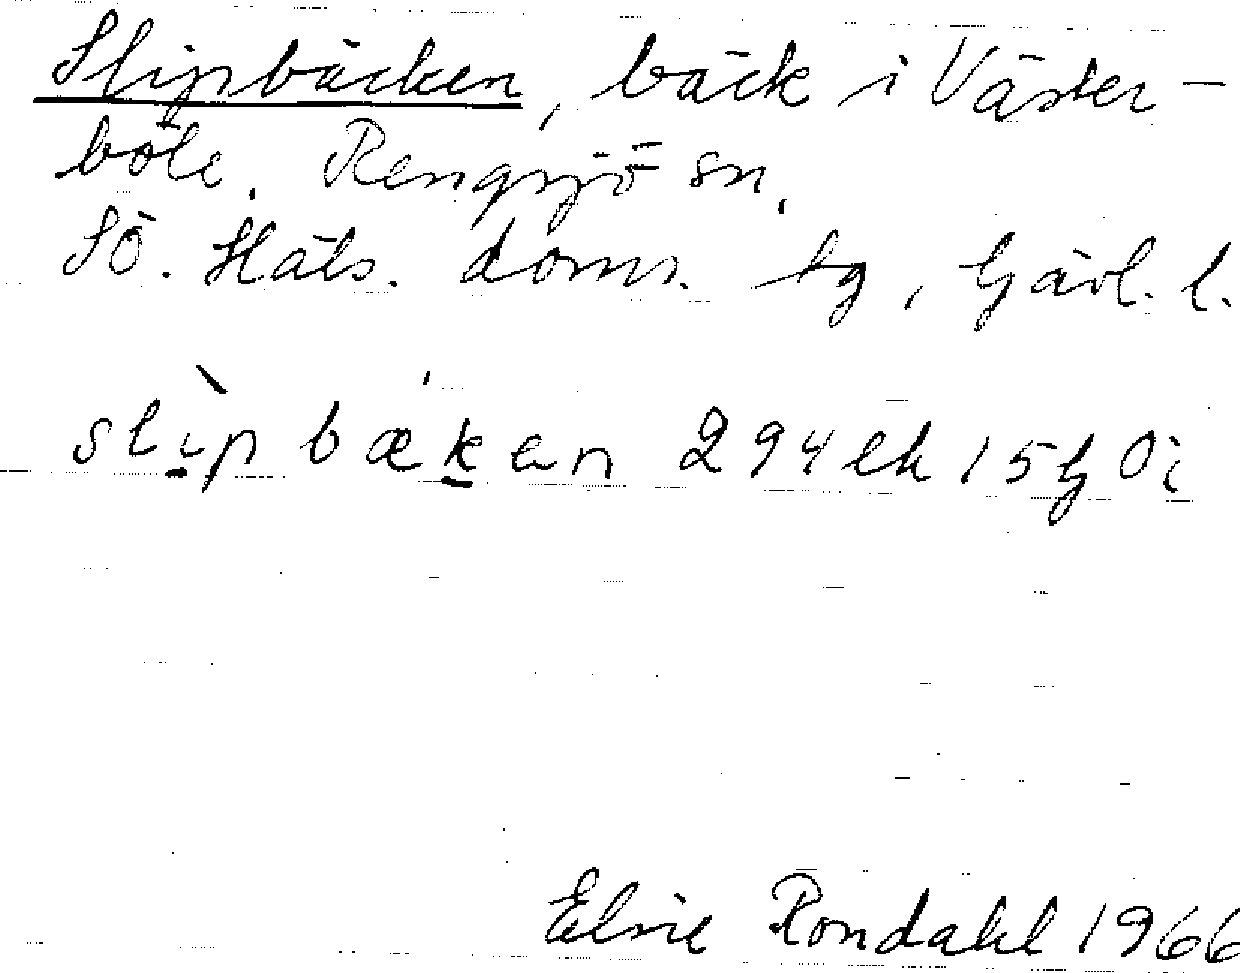 Slipbäcken, bäck i Väster-
böle. Rengsjö sn,
Sö. Häls. doms. tg, Gävl. l.
slìp bæ´ken 294 ek 15 g Öi
Elsie Rondahl 1966